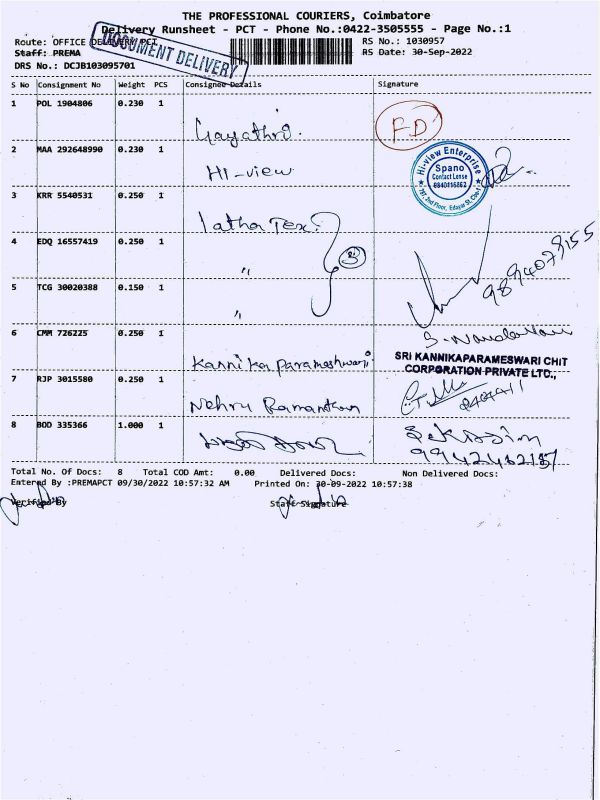 THE PROFESSIONAL COURIERS, Coimbatore
Delivery Runsheet - PCT - Phone No.:0422-3505555 - Page No.:1
Route: OFFICE DELIVERY PCT RS No.: 1030957
Staff: PREMA RS Date: 30-Sep-2022
DRS No.: DCJB103095701
DOCUMENT DELIVERY
S No Consignment No Weight PCS Consignee Details Signature
1 POL 1904806 0.230 1
Gayathri. FD
2 MAA 292648990 0.230 1
Hi-view
Hi-view Enterprise
Spano
Contact Lense
3 KRR 5540531 0.250 1
Latha Tex
4 EDQ 16557419 0.250 1
" 3
5 TCG 30020388 0.150 1
"
9894079155
6 CMM 726225 0.250 1
Kannika parameshwari
SRI KANNIKAPARAMESWARI CHIT
CORPORATION PRIVATE LTD.,
7 RJP 3015580 0.250 1
Nehru
8 BOD 335366 1.000 1
Total No. Of Docs: 8 Total COD Amt: 0.00 Delivered Docs: Non Delivered Docs:
Entered By :PREMAPCT 09/30/2022 10:57:32 AM Printed On: 30-09-2022 10:57:38
Verified By Staff Signature